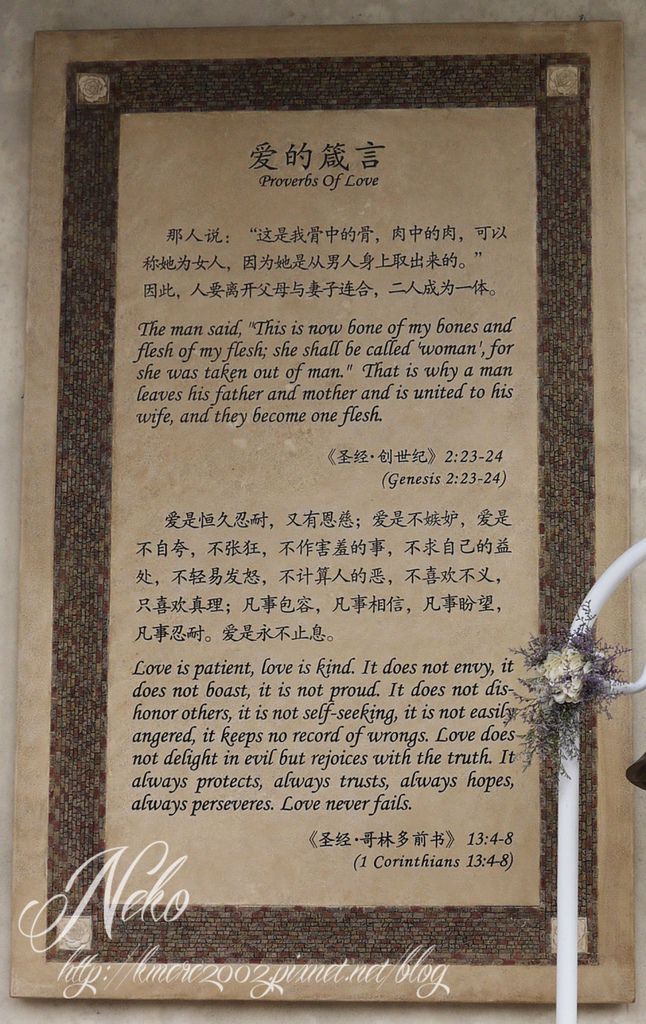 爱的箴言
Proverbs Of Love
那人说：“这是我骨中的骨，肉中的肉，可以
称她为女人，因为她是从男人身上取出来的。”
因此，人要离开父母与妻子连合，二人成为一体。
The man said, "This is now bone of my bones and
flesh of my flesh; she shall be called 'woman', for
she was taken out of man." That is why a man
leaves his father and mother and is united to his
wife, and they become one flesh.
《圣经·创世纪》2:23-24
(Genesis 2:23-24)
爱是恒久忍耐，又有恩慈；爱是不嫉妒，爱是
不自夸，不张狂，不作害羞的事，不求自己的益
处，不轻易发怒，不计算人的恶，不喜欢不义，
只喜欢真理；凡事包容，凡事相信，凡事盼望，
凡事忍耐。爱是永不止息。
Love is patient, love is kind. It does not envy, it
does not boast, it is not proud. It does not dis-
honor others, it is not self-seeking, it is not easily
angered, it keeps no record of wrongs. Love does
not delight in evil but rejoices with the truth. It
always protects, always trusts, always hopes,
always perseveres. Love never fails.
《圣经·哥林多前书》 13:4-8
(1 Corinthians 13:4-8)
Neko
http://kmerc2002.pixnet.net/blog